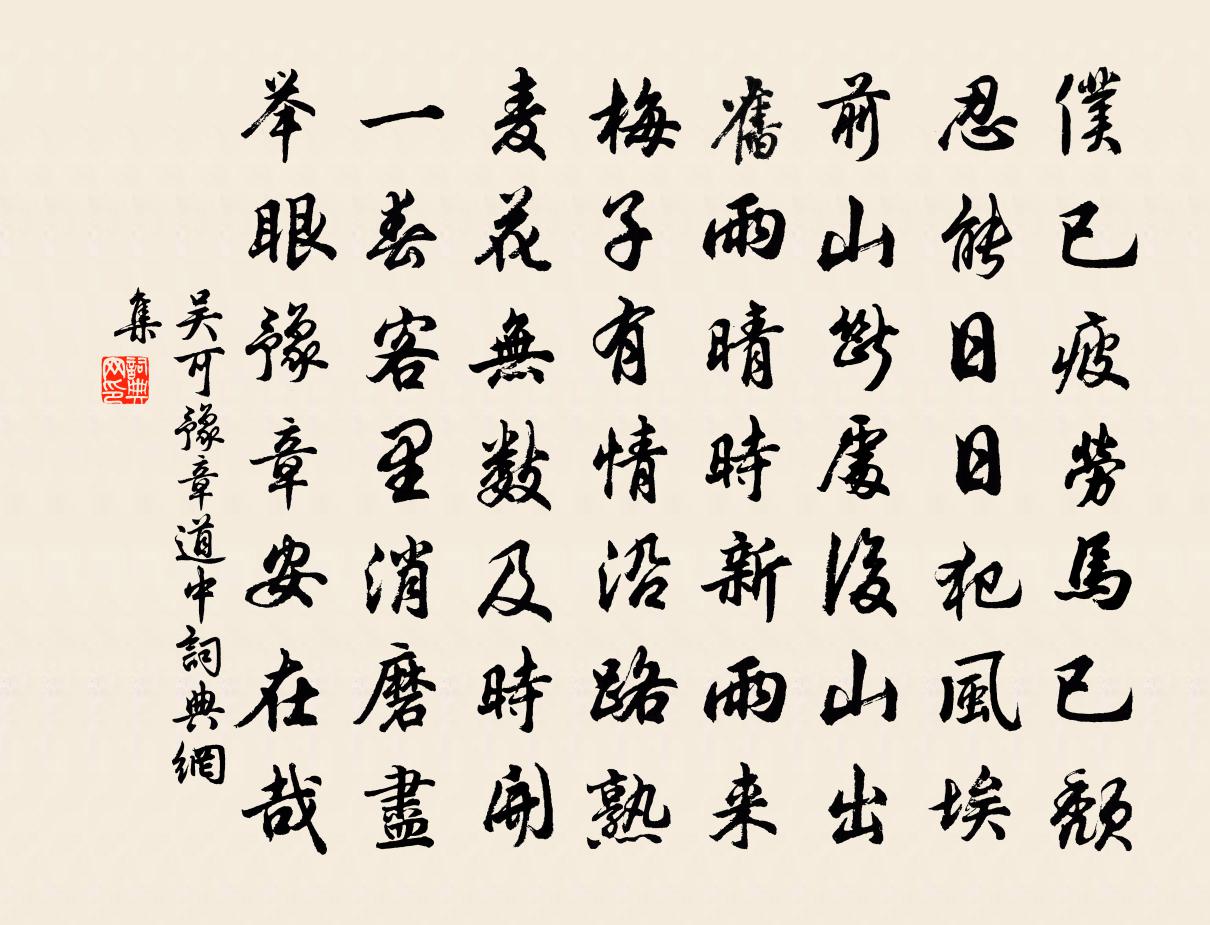 僕已疲勞馬已頹
忍能日日犯風埃
前山斷處後山出
舊雨晴時新雨來
梅子有情沿路熟
麦花無数及時開
一春客里消磨盡
举眼豫章安在哉
吴可豫章道中詞典網
集
詞典
网印